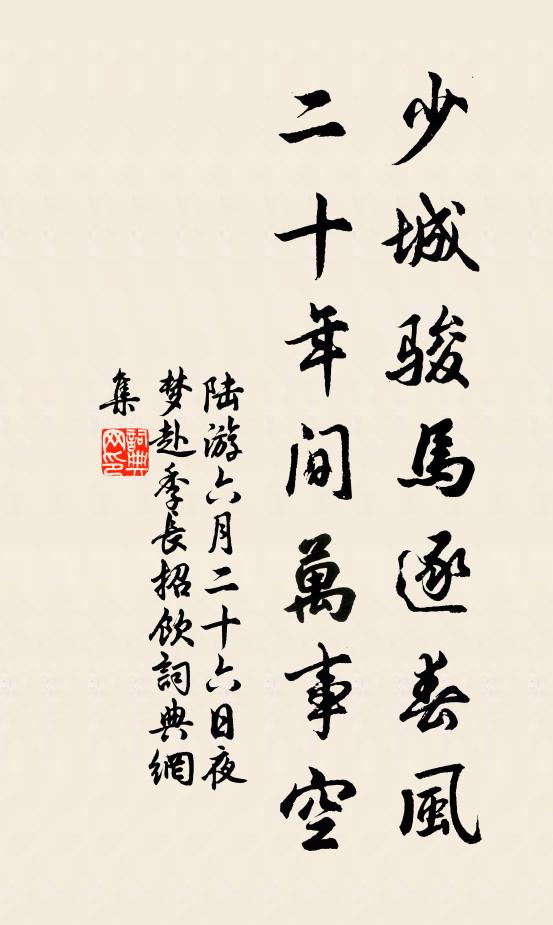 少城骏馬逐春風
二十年间萬事空
陆游六月二十六日夜
梦赴季長招飲詞典網
集
詞典网印